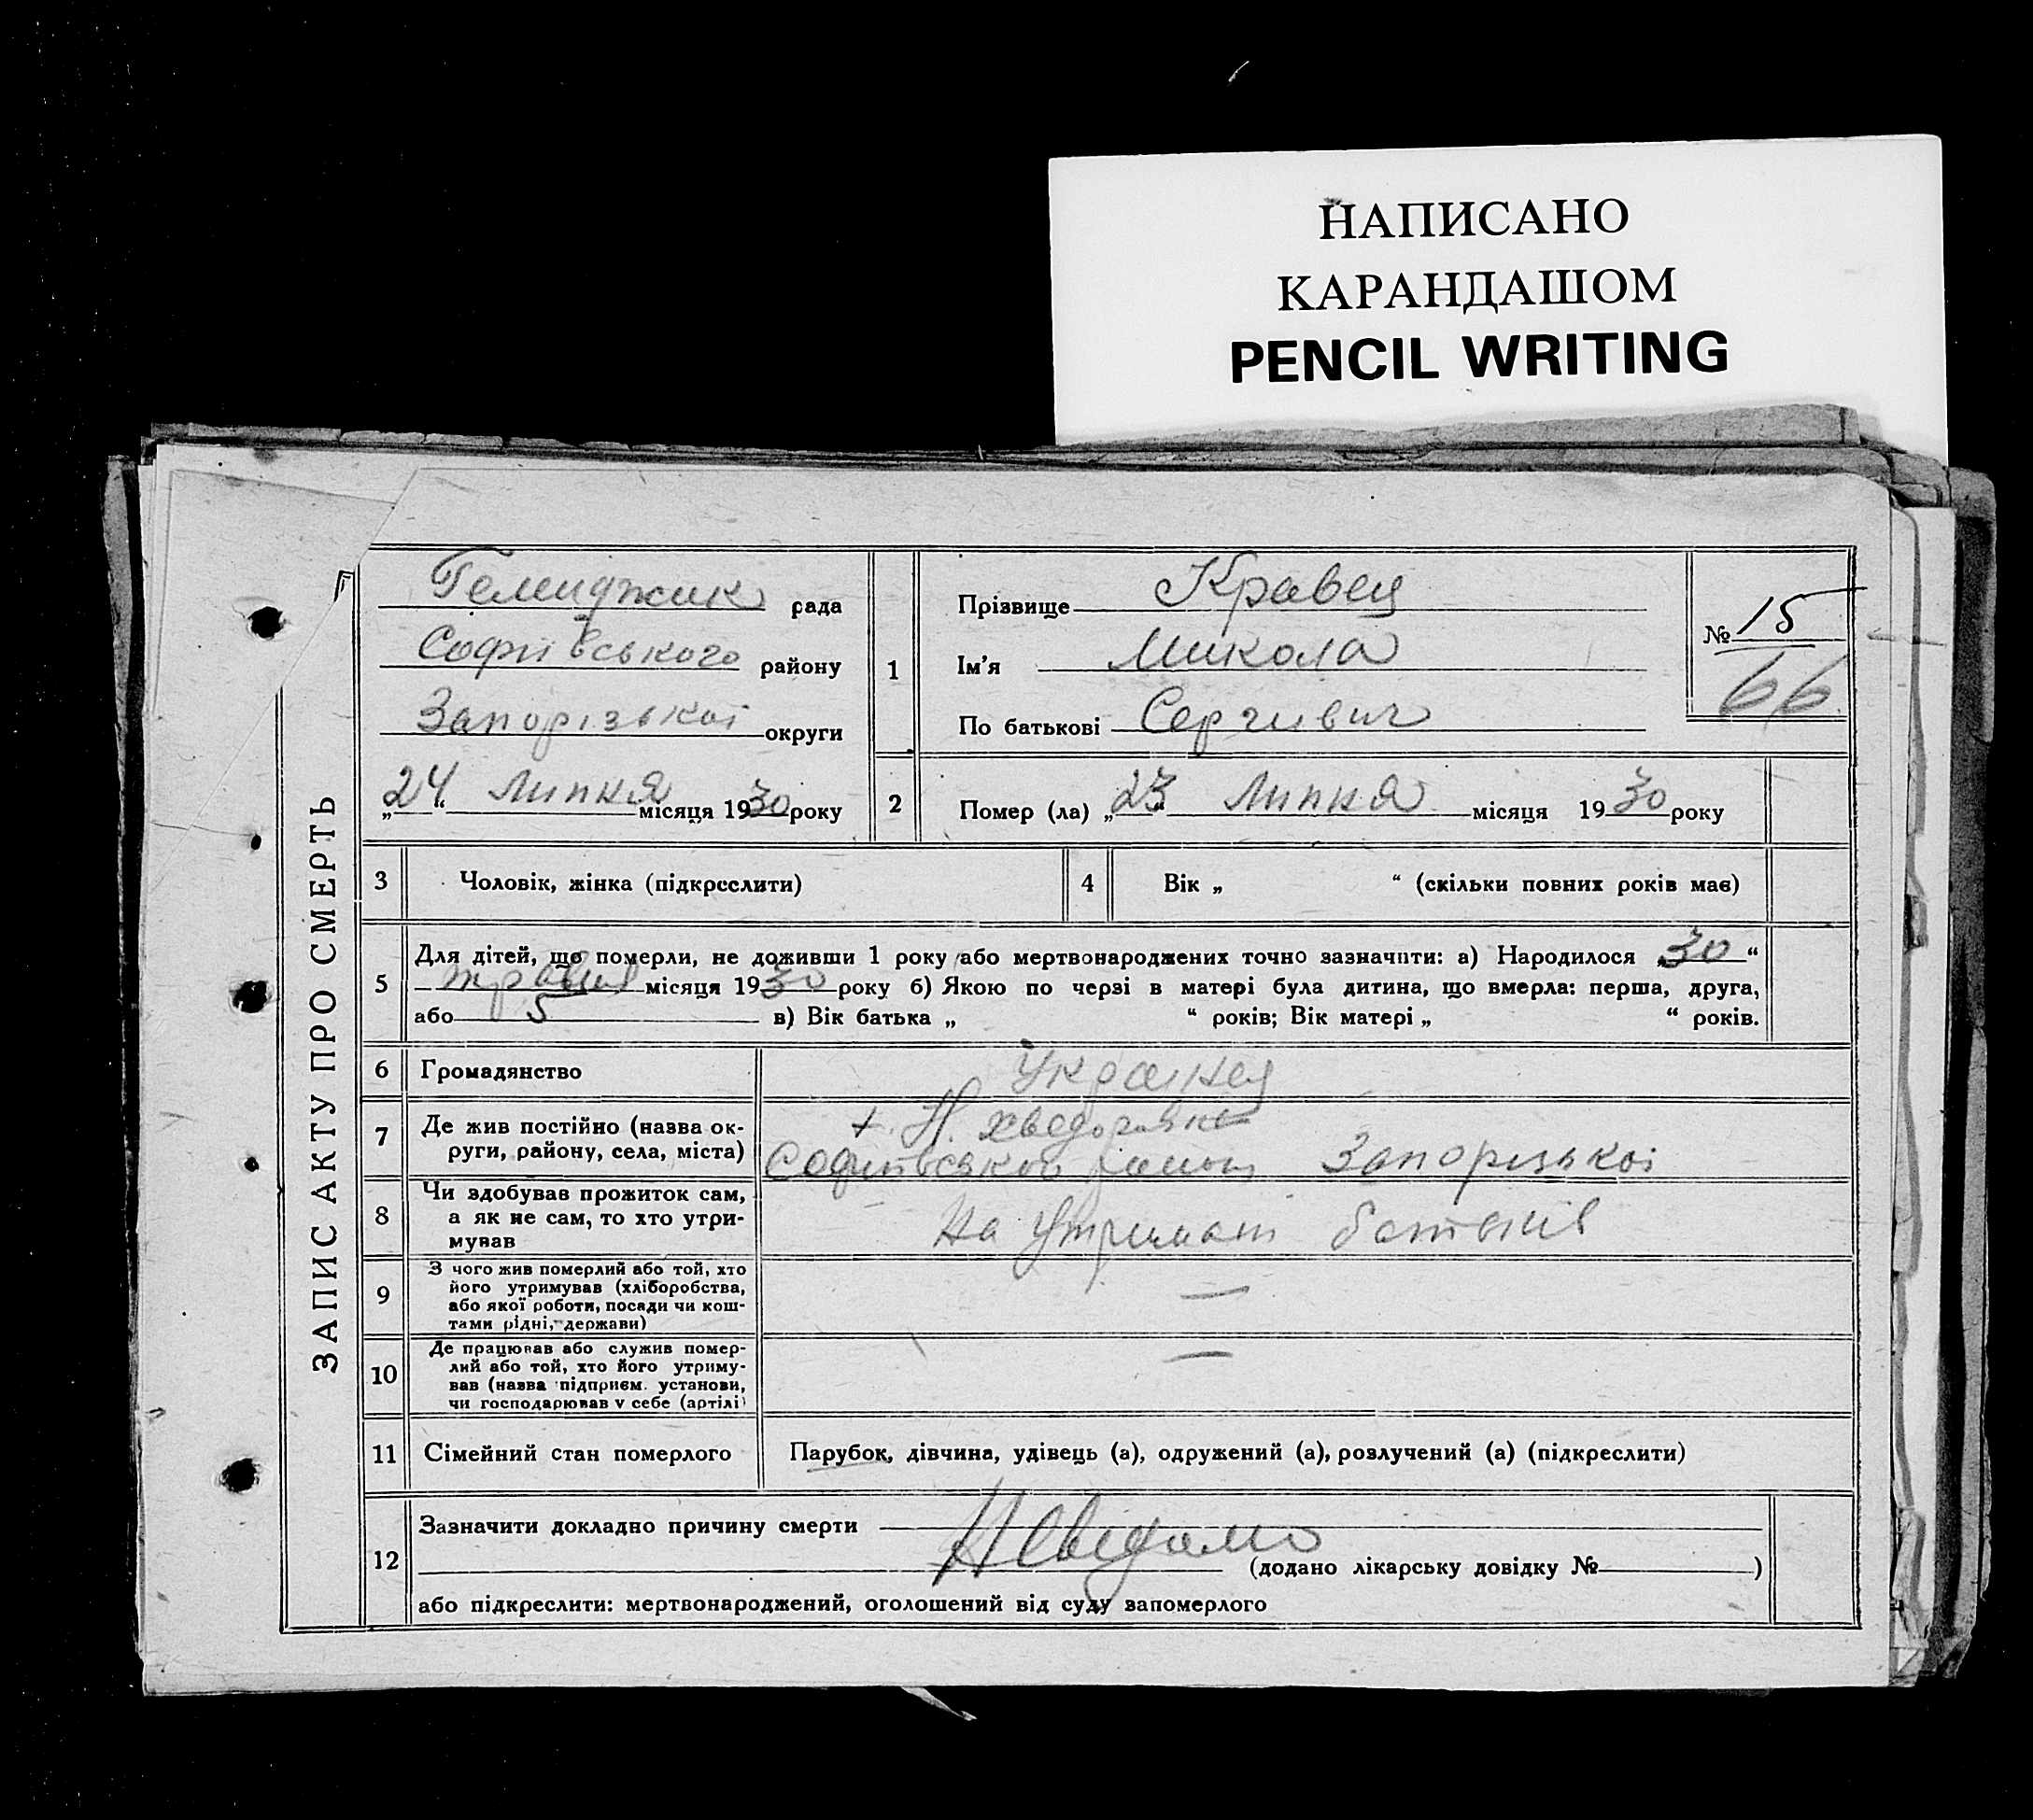 НАПИСАНО
КАРАНДАШОМ
PENCIL WRITING
ЗАПИС АКТУ ПРО СМЕРТЬ
рада
Софіївського району
Запорізької округи
„24“ Липня місяця 1930 року
1
Прізвище Кравец
Ім'я Микола
По батькові Сергиевич
№ 15
66
2
Помер (ла) „23“ Липня місяця 1930 року
3
Чоловік, жінка (підкреслити)
4
Вік „ “ (скільки повних років має)
5
Для дітей, що померли, не доживши 1 року або мертвонароджених точно зазначити: а) Народилося „30“
травня місяця 1930 року б) Якою по черзі в матері була дитина, що вмерла: перша, друга,
або 5 в) Вік батька „ “ років; Вік матері „ “ років.
6
Громадянство
Украинец
7
Де жив постійно (назва ок-
руги, району, села, міста)
х. Н. Хведоровка
Софиівськой району Запорізькоі
8
Чи здобував прожиток сам,
а як не сам, то хто утри-
мував
На утримані батьків
9
З чого жив померлий або той, хто
його утримував (хліборобства,
або якої роботи, посади чи кош-
тами рідні, держави)
—
10
Де працював або служив помер-
лий або той, хто його утриму-
вав (назва підприєм. установи,
чи господарював у себе (артілі)
—
11
Сімейний стан померлого
Парубок, дівчина, удівець (а), одружений (а), розлучений (а) (підкреслити)
12
Зазначити докладно причину смерти
Невідомо
(додано лікарську довідку № )
або підкреслити: мертвонароджений, оголошений від суду запомерлого